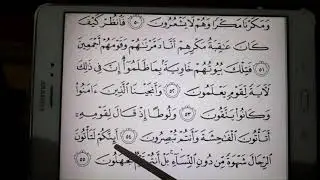 وَمَكَرْنَا مَكْرًا وَهُمْ لَا يَشْعُرُونَ ٥٠ فَٱنظُرْ كَيْفَ
كَانَ عَٰقِبَةُ مَكْرِهِمْ أَنَّا دَمَّرْنَٰهُمْ وَقَوْمَهُمْ أَجْمَعِينَ
٥١ فَتِلْكَ بُيُوتُهُمْ خَاوِيَةًۢ بِمَا ظَلَمُوٓا۟ إِنَّ فِى ذَٰلِكَ
لَءَايَةً لِّقَوْمٍ يَعْلَمُونَ ٥٢ وَأَنجَيْنَا ٱلَّذِينَ ءَامَنُوا۟
وَكَانُوا۟ يَتَّقُونَ ٥٣ وَلُوطًا إِذْ قَالَ لِقَوْمِهِۦٓ
أَتَأْتُونَ ٱلْفَٰحِشَةَ وَأَنتُمْ تُبْصِرُونَ ٥٤ أَئِنَّكُمْ لَتَأْتُونَ
ٱلرِّجَالَ شَهْوَةً مِّن دُونِ ٱلنِّسَآءِ بَلْ أَنتُمْ قَوْمٌ تَجْهَلُونَ ٥٥